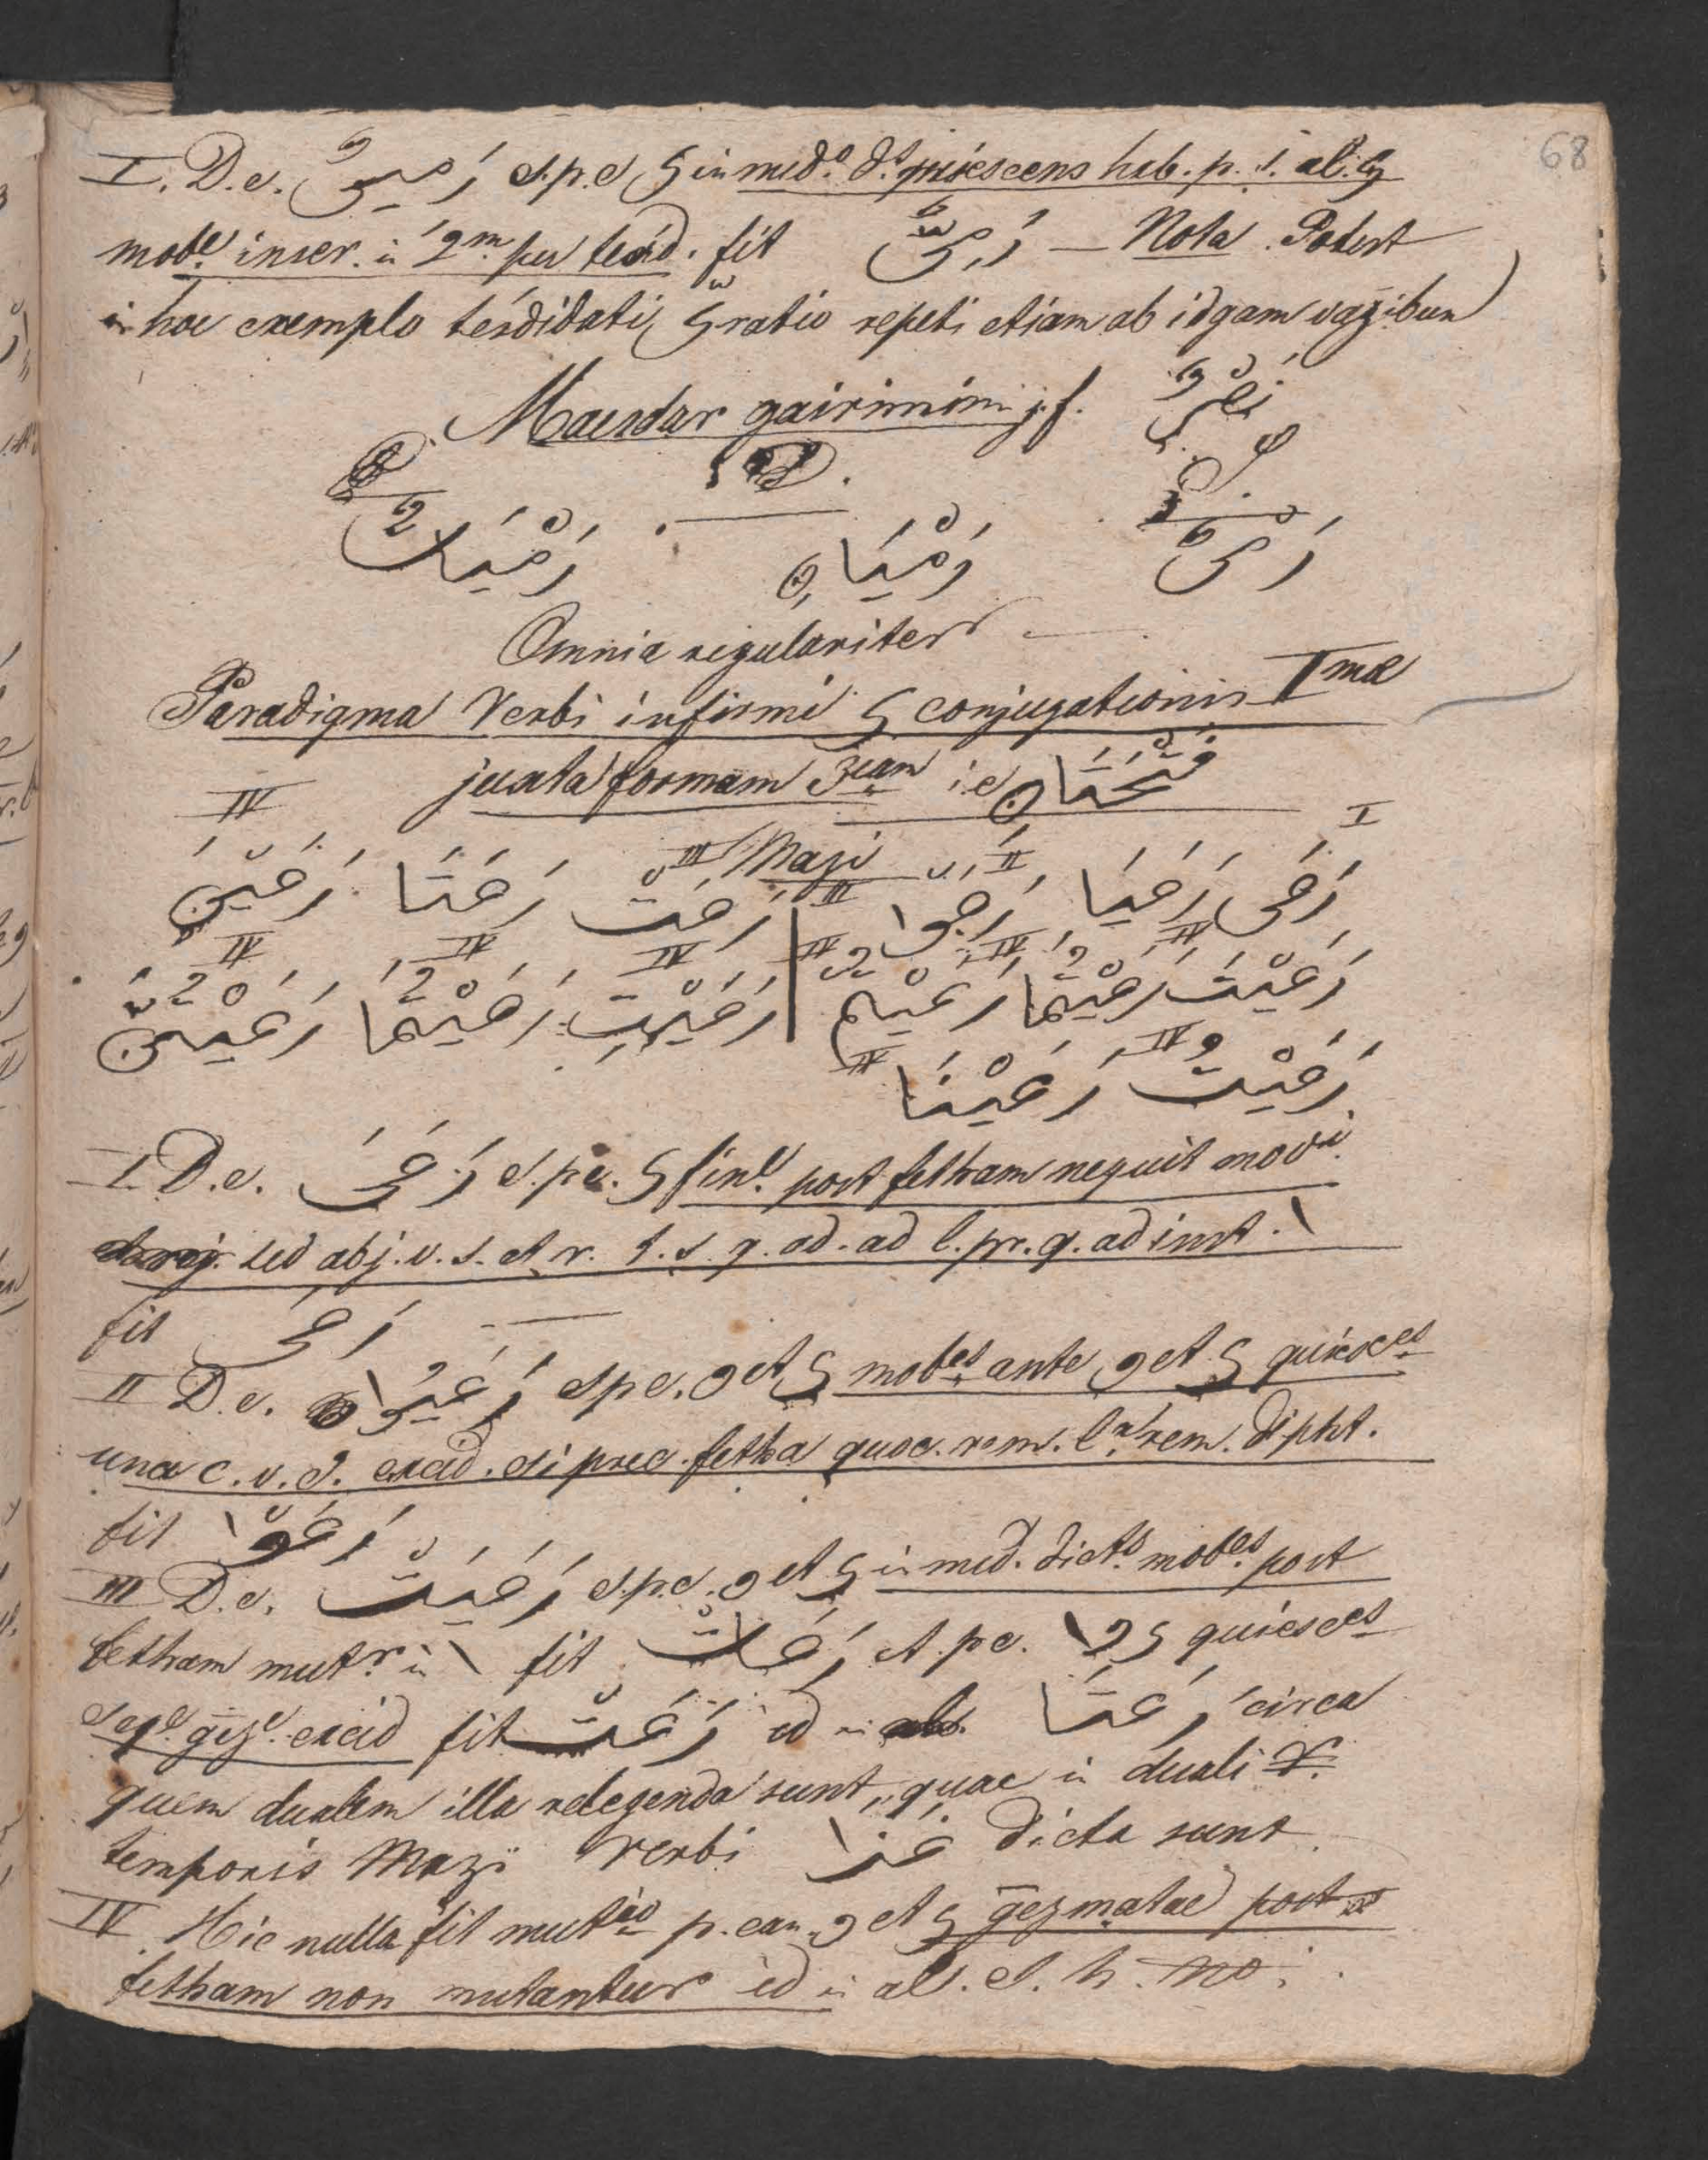 68
I. D.e. رَمِييٌ s.p.e ي in med.o d.s quiescens hab. p. s. al. ي
mob.e inser. in 2.m per tesd. fit رَمِيٌّ — Nota. Potest
in hoc exemplo tesdidati ي ratio repeti etiam ab idgam vagibun
Maesdar gairimimi j. f. نَصْرٌ
S.
D.
P.
رَمْيٌ رَمْيَانِ رَمْيَاتٌ
Omnia regulariter
Paradigma Verbi infirmi ي conjugationis I.mae
juxta formam 3.iam i.e فَتْحَتَانِ
Mazi
I II III III IV
رَعَى رَعَيَا رَعَوْا رَعَتْ رَعَتَا رَعَيْنَ
IV IV IV IV IV IV
رَعَيْتَ رَعَيْتُمَا رَعَيْتُمْ رَعَيْتِ رَعَيْتُمَا رَعَيْتُنَّ
IV IV
رَعَيْتُ رَعَيْنَا
I. D.e. رَعَيَ s.p.e. ي fin.e post fetham nequit mov.i
sed abj. v. s. et r. t. s. q. ad. ad l. pr. q. ad inst. ا
fit رَعَى
II D.e. رَعَيُوا s p e. و et ي mob.es ante و et ي quiesc.es
una c. v. s. excid. si prec. fetha quoc. rem. l.a rem. dipht.
fit رَعَوْا
III D.e. رَعَيَتْ s.p.e. و et ي in med. dict.s mob.es post
fetham mut.r in ا fit رَعَاتْ et. p e. ا و ي quiesc.es
seq.e gez.e excid fit رَعَتْ id in رَعَتَا circa
quem dualem illa relegenda sunt, quae in duali
temporis Mazi verbi غَزَا dicta sunt.
IV. Hic nulla fit mut.tio p. can. و et ي gezmatae post
fetham non mutantur id in al. s. h. no.